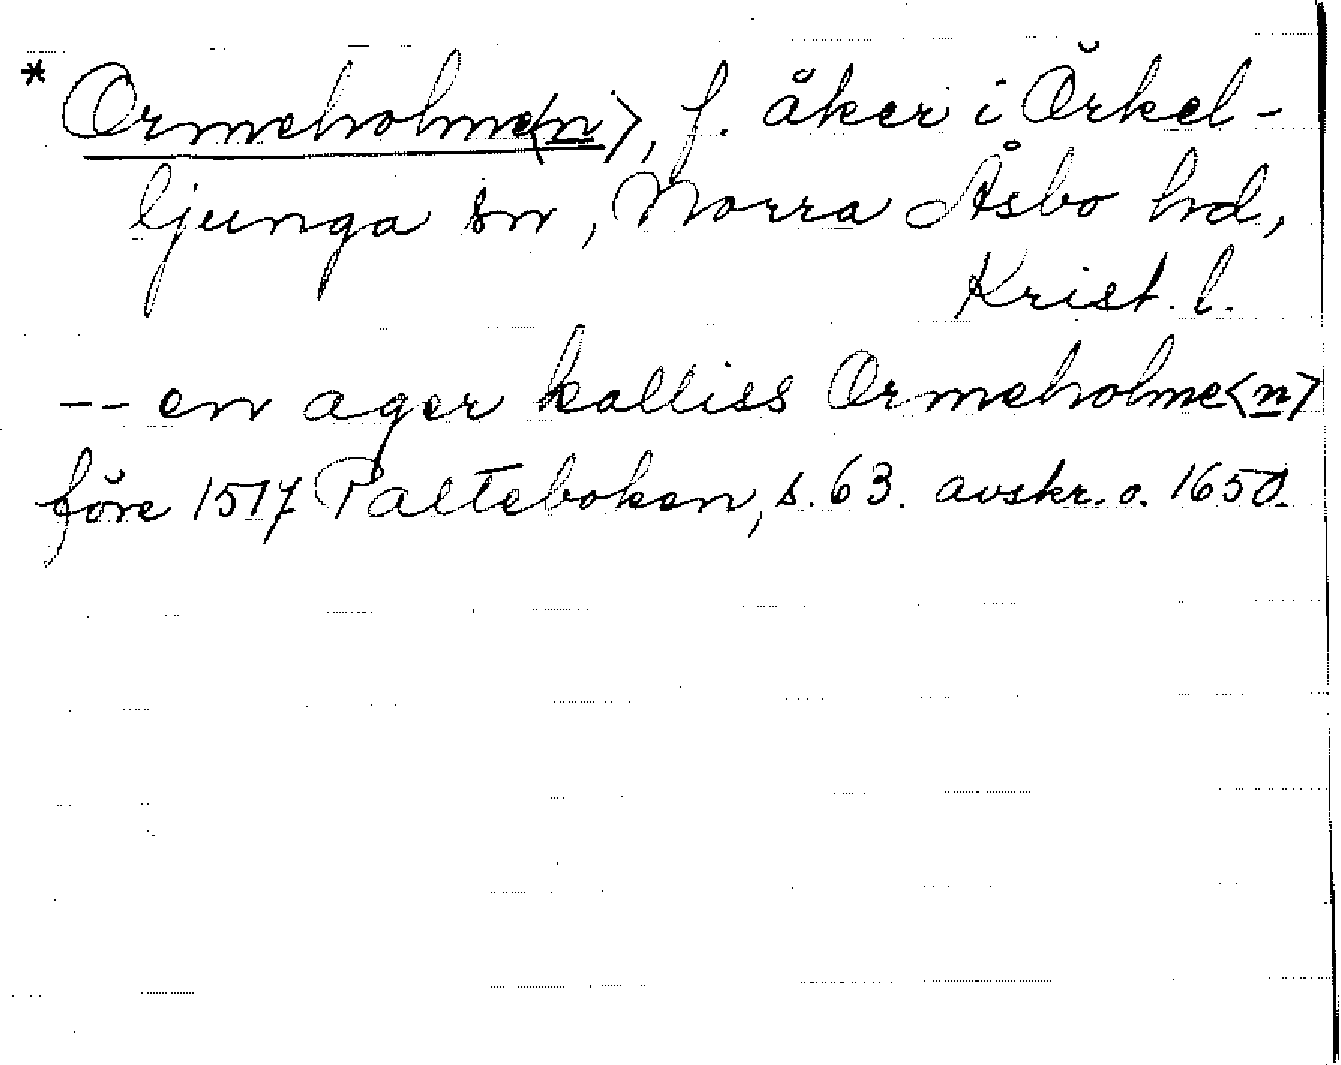 * Ormeholme⟨n⟩, f. åker i Örkel-
ljunga sn, Norra Åsbo hd,
Krist. l.
-- en ager kalliss Ormeholme⟨n⟩
före 1517 Palteboken, s. 63. avskr. o. 1650.